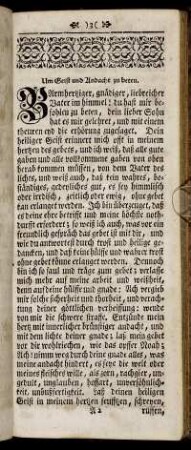 )3(
Um Geist und Andacht zu beten.
BArmhertziger, gnädiger, liebreicher
Vater im himmel: du hast mir be-
fohlen zu beten, dein lieber Sohn
hat es mir gelehret, und mit einem
theuren eyd die erhörung zugesaget. Dein
heiliger Geist erinnert mich oft in meinem
hertzen des gebets, und ich weiß, daß alle gute
gaben und alle vollkommene gaben von oben
herab kommen müssen, von dem Vater des
lichts, und weiß auch, daß kein wahres, be-
ständiges, gedeyliches gut, es sey himmlisch
oder irrdisch, zeitlich oder ewig, ohne gebet
kan erlanget werden. Ich bin überzeuget, daß
es deine ehre betrifft und meine höchste noth-
durfft erfordert; so weiß ich auch, was vor ein
freundlich gespräch das gebet ist mit dir, und
wie du antwortest durch trost und heilige ge-
dancken, und daß keine hülffe und wahrer trost
ohne gebet könne erlanget werden. Dennoch
bin ich so faul und träge zum gebet; verlasse
mich mehr auf meine arbeit und weißheit,
denn auf deine hülffe und gnade: Ach vergib
mir solche sicherheit und thorheit, und verach-
tung deiner göttlichen verheissung: wende
von mir die schwere straffe. Entzünde mein
hertz mit innerlicher brünstiger andacht, und
mit dem lichte deiner gnade; laß mein gebet
vor dir wohlriechen, wie das opffer Noah;
Ach! nimm weg durch deine gnade alles, was
meine andacht hindert, es sey die welt oder
meines fleisches wille, als zorn, rachgier, un-
gedult, unglauben, hoffart, unversöhnlich-
keit, unbußfertigkeit. Laß deinen heiligen
Geist in meinem hertzen seufftzen, schreyen,
A 2
rühmen,